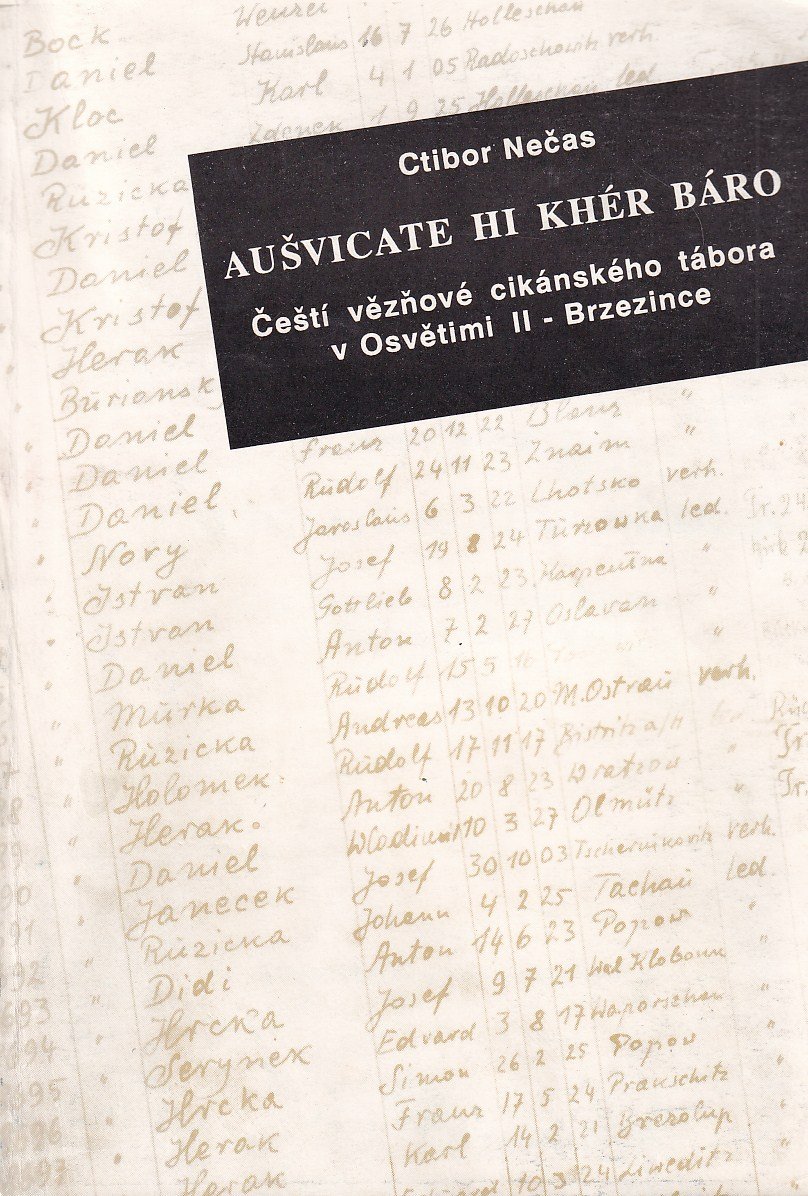 Bock Wenzel
Daniel Stanislaus 16 7 26 Holleschau
Kloc Karl 4 1 05 Radoschowitz verh.
Daniel Zdenek 1 9 25 Holleschau led.
Růzicka
Kristof
Daniel
Kristof
Herak
Bůriansk
Daniel
Daniel Franz 20 12 22 "
Daniel Růdolf 24 11 23 Znaim "
Nory Jaroslaus 6 3 22 Lhotsko verh.
Istvan Josef 19 8 24 Tůrzowka led.
Istvan Gottlieb 8 2 23 "
Daniel Anton 7 2 27 Oslavan "
Můrka Růdolf 15 5 "
Růzicka Andreas 13 10 20 M. Ostraů verh.
Holomek Růdolf 17 11 17 Bistritz a/H
Herak. Anton 20 8 23 Wratzow "
Daniel Wladimil 10 3 27 Olmůtz "
Janecek Josef 30 10 03 Tschernikowitz verh.
Růzicka Johann 4 2 25 Tachaů led.
Didi Anton 14 6 23 Popow "
Hrcka Josef 9 7 21 Wal Klobouk "
Serynek Edvard 3 8 17
Hrcka Simon 26 2 25 Popov "
Herak Franz 17 5 24 Prakschitz "
Herak Karl 14 2 21 Brezolup "
10 3 24 "
Ctibor Nečas
AUŠVICATE HI KHÉR BÁRO
Čeští vězňové cikánského tábora
v Osvětimi II - Brzezince